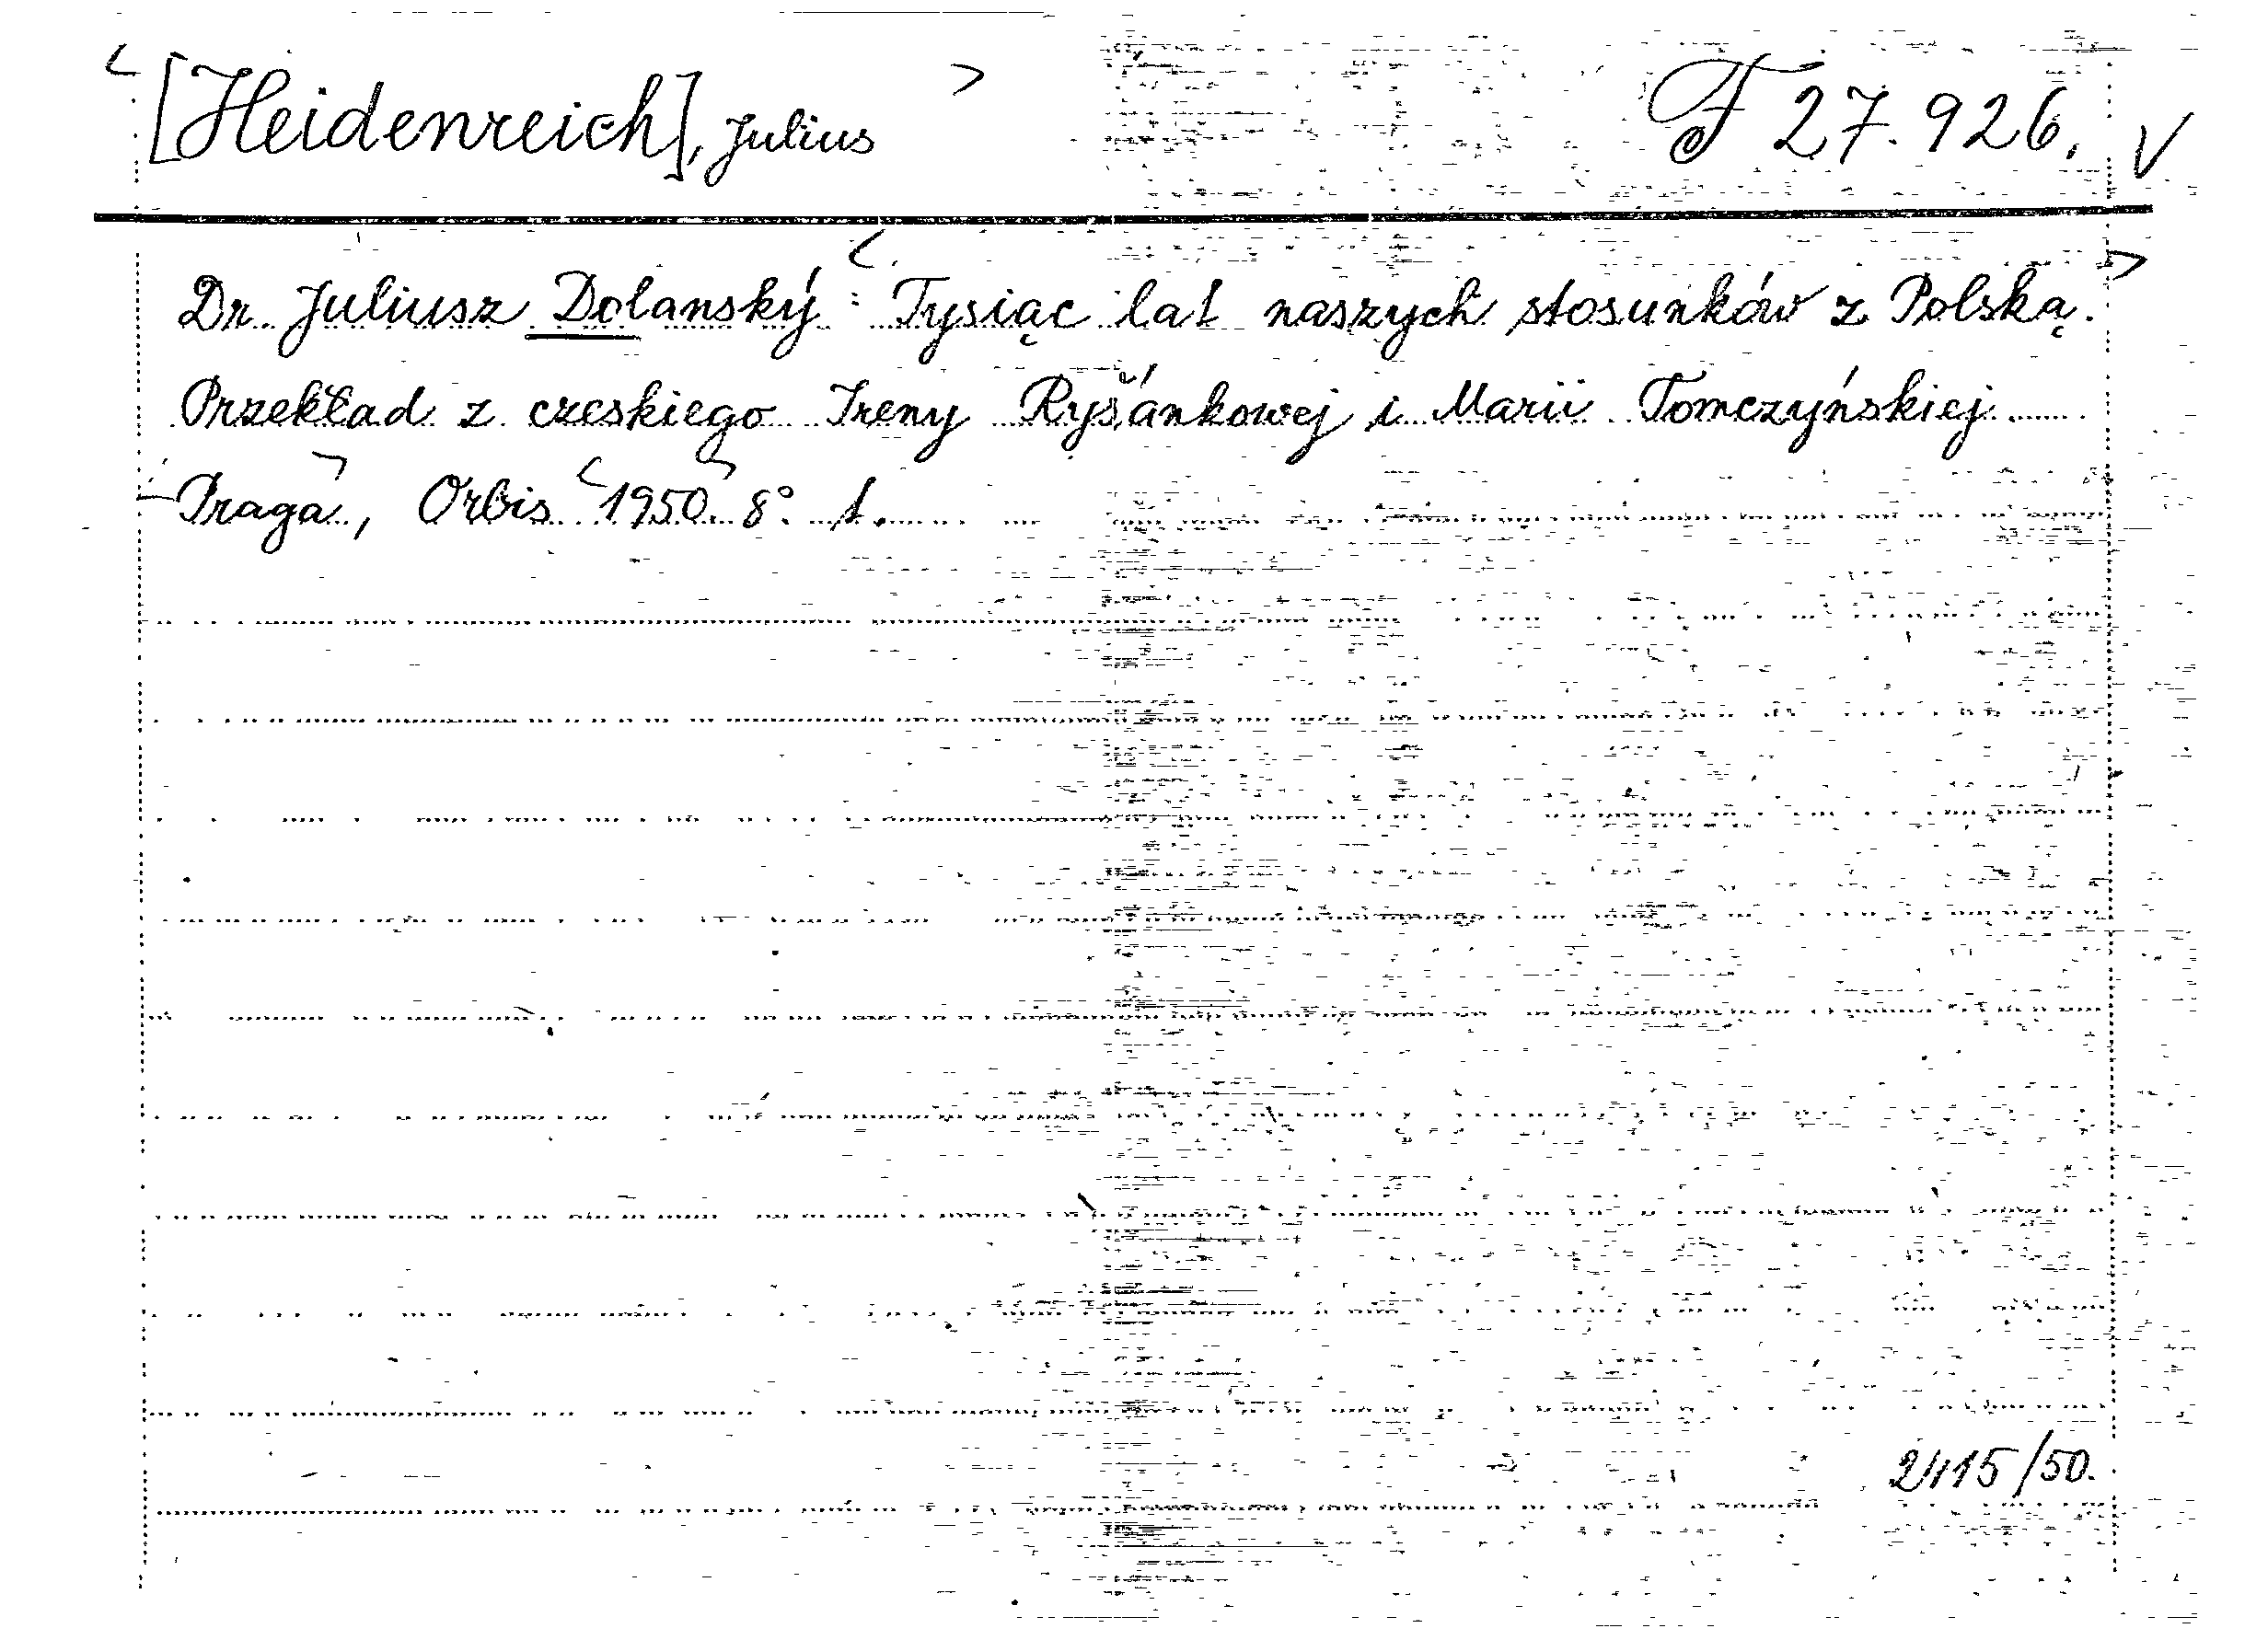 [Heidenreich], Julius F 27.926.
Dr Juliusz Dolanský: Tysiąc lat naszych stosunków z Polską.
Przekład z czeskiego Ireny Ryšánkowej i Marii Tomczyńskiej
Praga, Orbis 1950 8° 1.
2115/50.